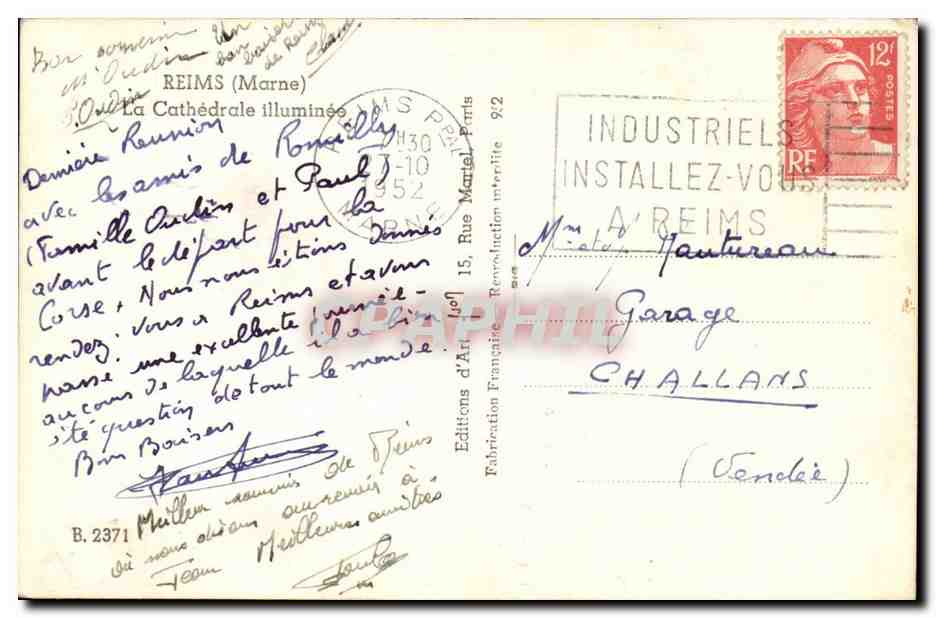 Bon souvenir
Mr Oudin
Un
bon baiser
de Reims
REIMS (Marne)
La Cathédrale illuminée
Dernière Réunion
avec les amis de Romilly
(Famille Oudin et Paul)
avant le départ pour la
Corse. Nous nous étions donnés
rendez-vous à Reims et avons
passé une excellente journée
au cours de laquelle il a bien
été question de tout le monde
Bons Baisers
Meilleur souvenir de Reims
où nous disons au revoir à
Meilleures amitiés
B. 2371
Editions d'Art
15, Rue Martel - Paris
Fabrication Française - Reproduction interdite
REIMS
30
27-10
1952
MARNE
INDUSTRIELS
INSTALLEZ-VOUS
A REIMS
12F
POSTES
RF
Mme
Garage
CHALLANS
(Vendée)
CPAPHIL